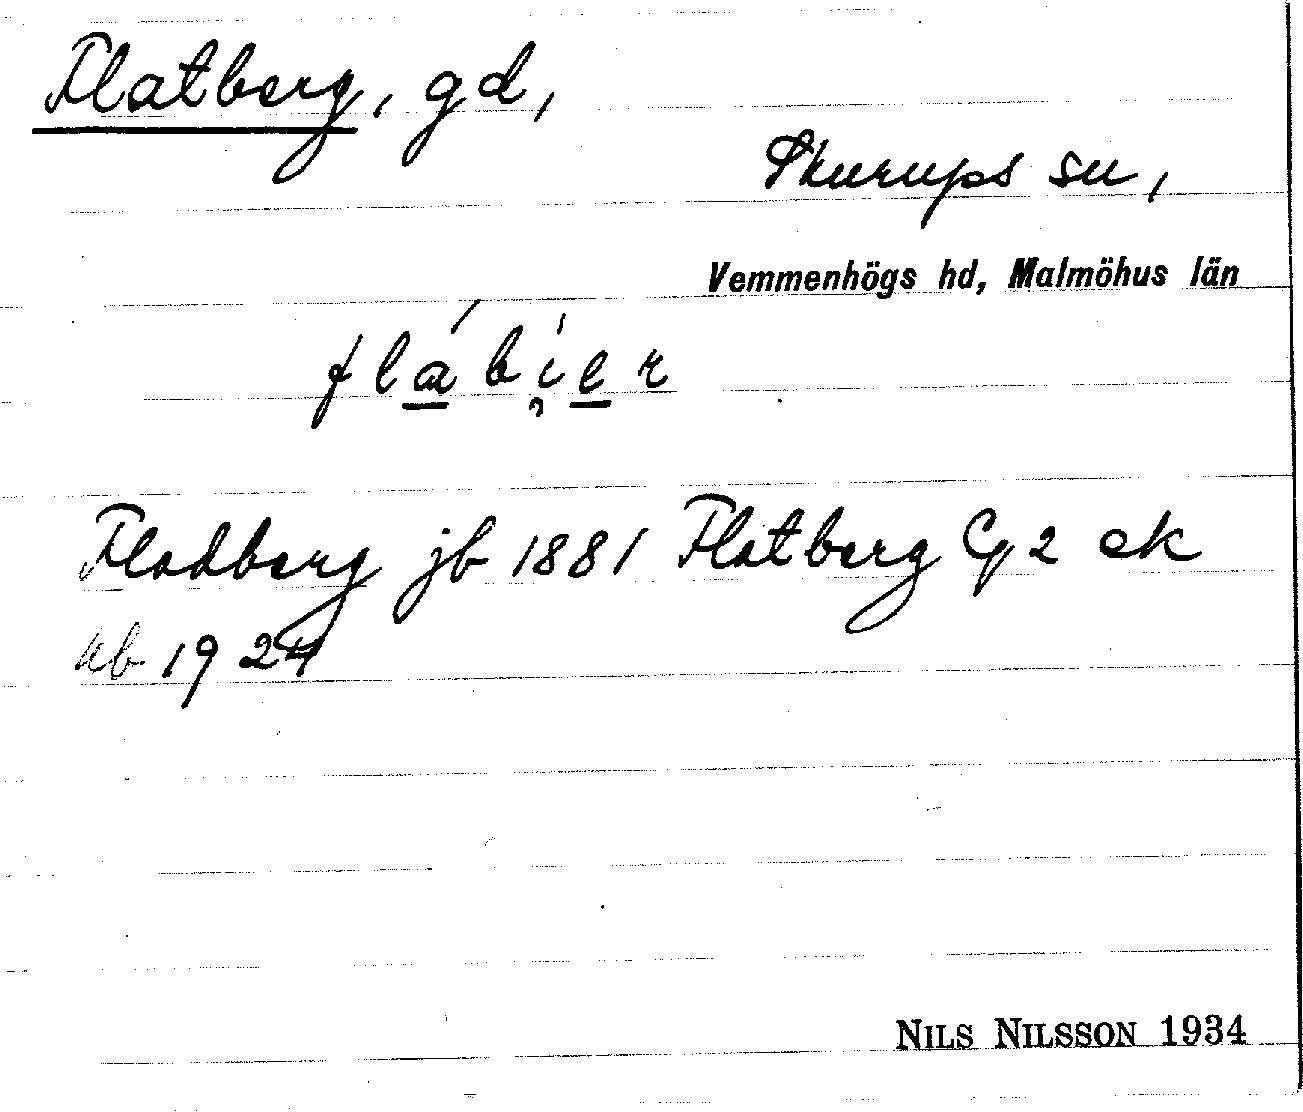 Flatberg, gd,
Skurups sn,
Vemmenhögs hd, Malmöhus län
Fladberg jb 1881 Flatberg G2 ek
kb 1924
NILS NILSSON 1934